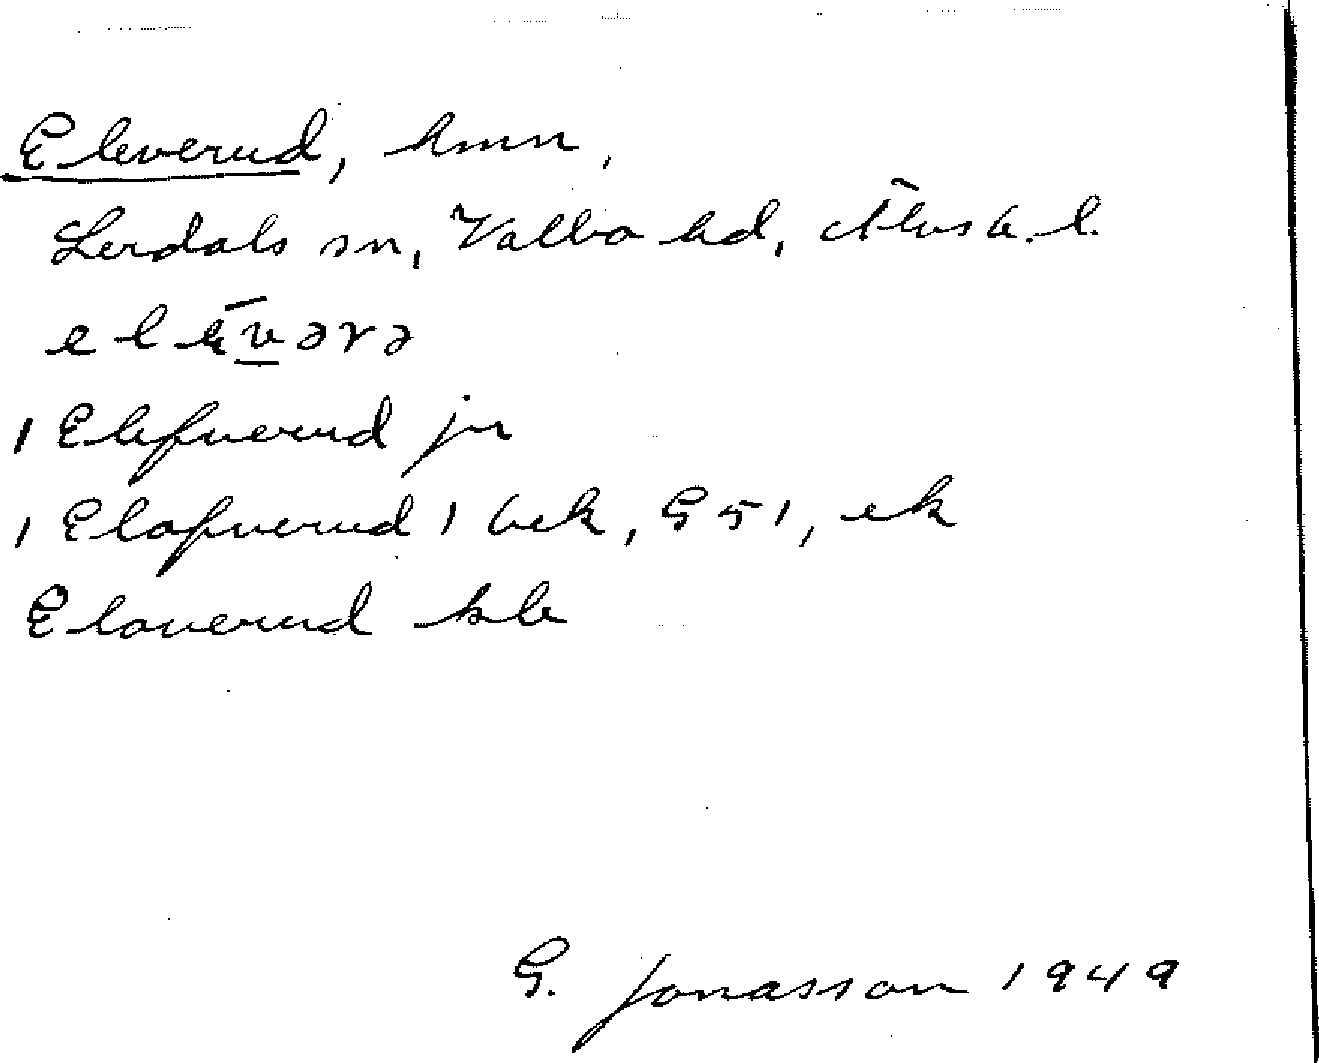 Eleverud, hmn,
Lerdals sn, Valbo hd, Älvsb. l.
elɛ̄vərə
1 Elefuerud jr
1 Elafuerud 1 bek, G 51, ek
Elauerud kb
G. Jonasson 1949